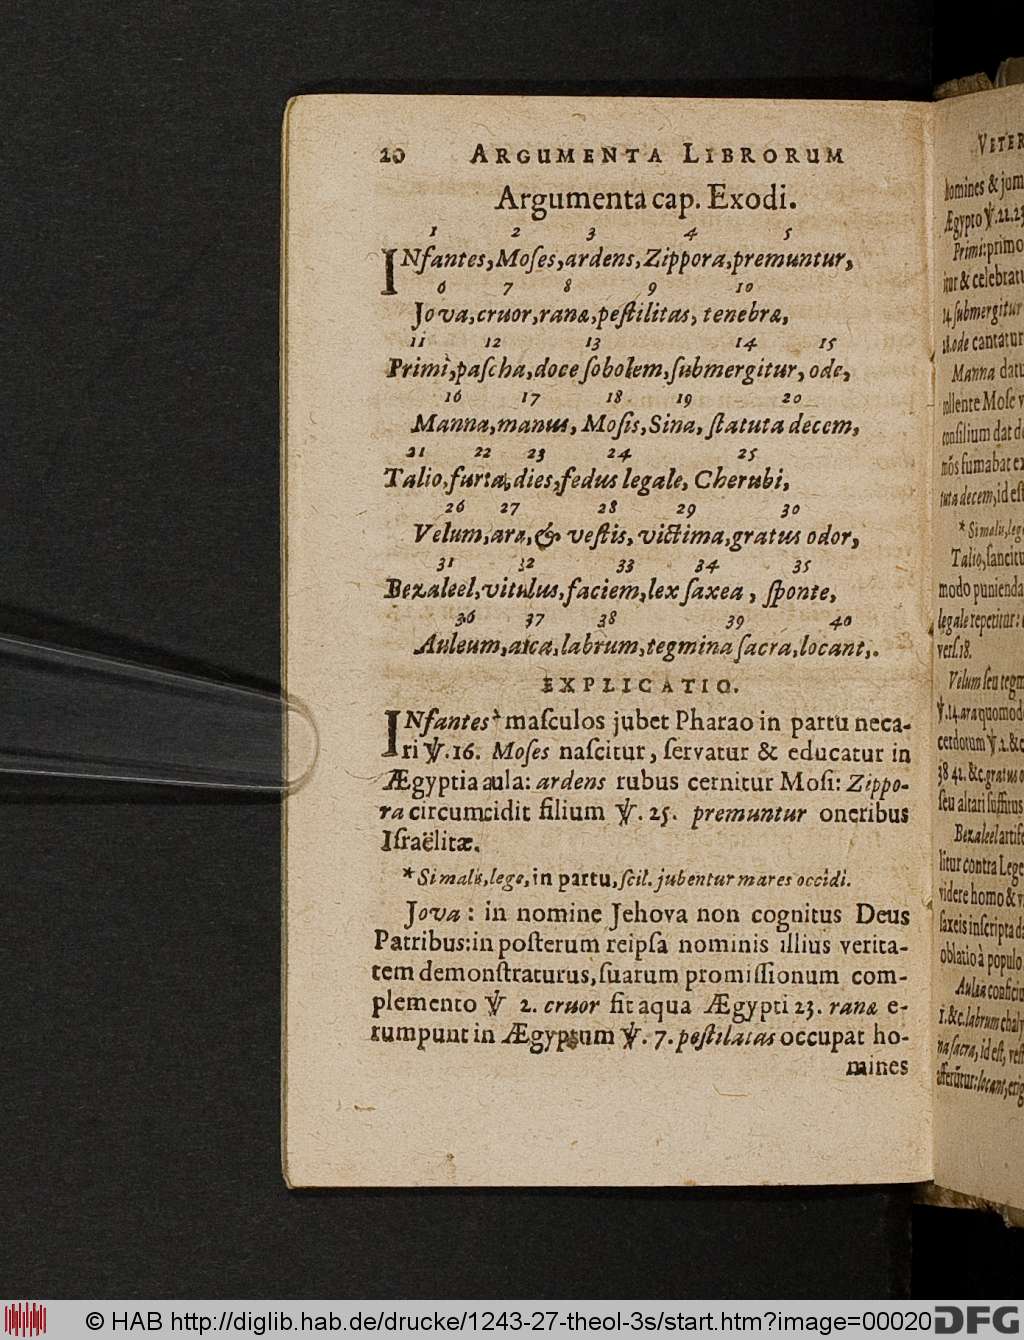 20 ARGUMENTA LIBRORUM
Argumenta cap. Exodi.
1 2 3 4 5
INfantes, Moſes, ardens, Zippora, premuntur,
6 7 8 9 10
Jova, cruor, ranæ, peſtilitas, tenebræ,
11 12 13 14 15
Primì, paſcha, doce ſobolem, ſubmergitur, ode,
16 17 18 19 20
Manna, manus, Moſis, Sina, ſtatuta decem,
21 22 23 24 25
Talio, furta, dies, fedus legale, Cherubi,
26 27 28 29 30
Velum, ara, & veſtis, victima, gratus odor,
31 32 33 34 35
Bezaleel, vitulus, faciem, lex ſaxea, ſponte,
36 37 38 39 40
Auleum, arca, labrum, tegmina ſacra, locant,.
EXPLICATIO.
INfantes * maſculos jubet Pharao in partu neca-
ri ℣. 16. Moſes naſcitur, ſervatur & educatur in
Ægyptia aula: ardens rubus cernitur Moſi: Zippo-
ra circumcidit filium ℣. 25. premuntur oneribus
Iſraëlitæ.
* Si malis, lege, in partu, ſcil. jubentur mares occidi.
Jova: in nomine Jehova non cognitus Deus
Patribus: in poſterum reipſa nominis illius verita-
tem demonſtraturus, ſuarum promiſſionum com-
plemento ℣ 2. cruor fit aqua Ægypti 23. ranæ e-
rumpunt in Ægyptum ℣. 7. peſtilatas occupat ho-
mines
VETER
homines & jum
Ægypto ℣. 22. 23
Primi: primo
itur & celebratu
14. ſubmergitur
18. ode cantatur
Manna datu
tollente Moſe v
conſilium dat de
nòs fumabat ex
tuta decem, id eſt
* Si malis, lege
Talio, ſancitu
modo punienda
legale repetitur:
verſ. 18.
Velum ſeu tegm
℣. 14. ara quomodo
cerdotum ℣. 2. &c
38 42. &c. gratus o
ſeu altari ſuffitus
Bezaleel artife
litur contra Lege
videre homo & v
ſaxeis inſcripta da
oblatio à populo
Aulæa conficiu
1. &c. labrum
na ſacra, id eſt, veſt
afferūtur: locant, erig
© HAB http://diglib.hab.de/drucke/1243-27-theol-3s/start.htm?image=00020 DFG